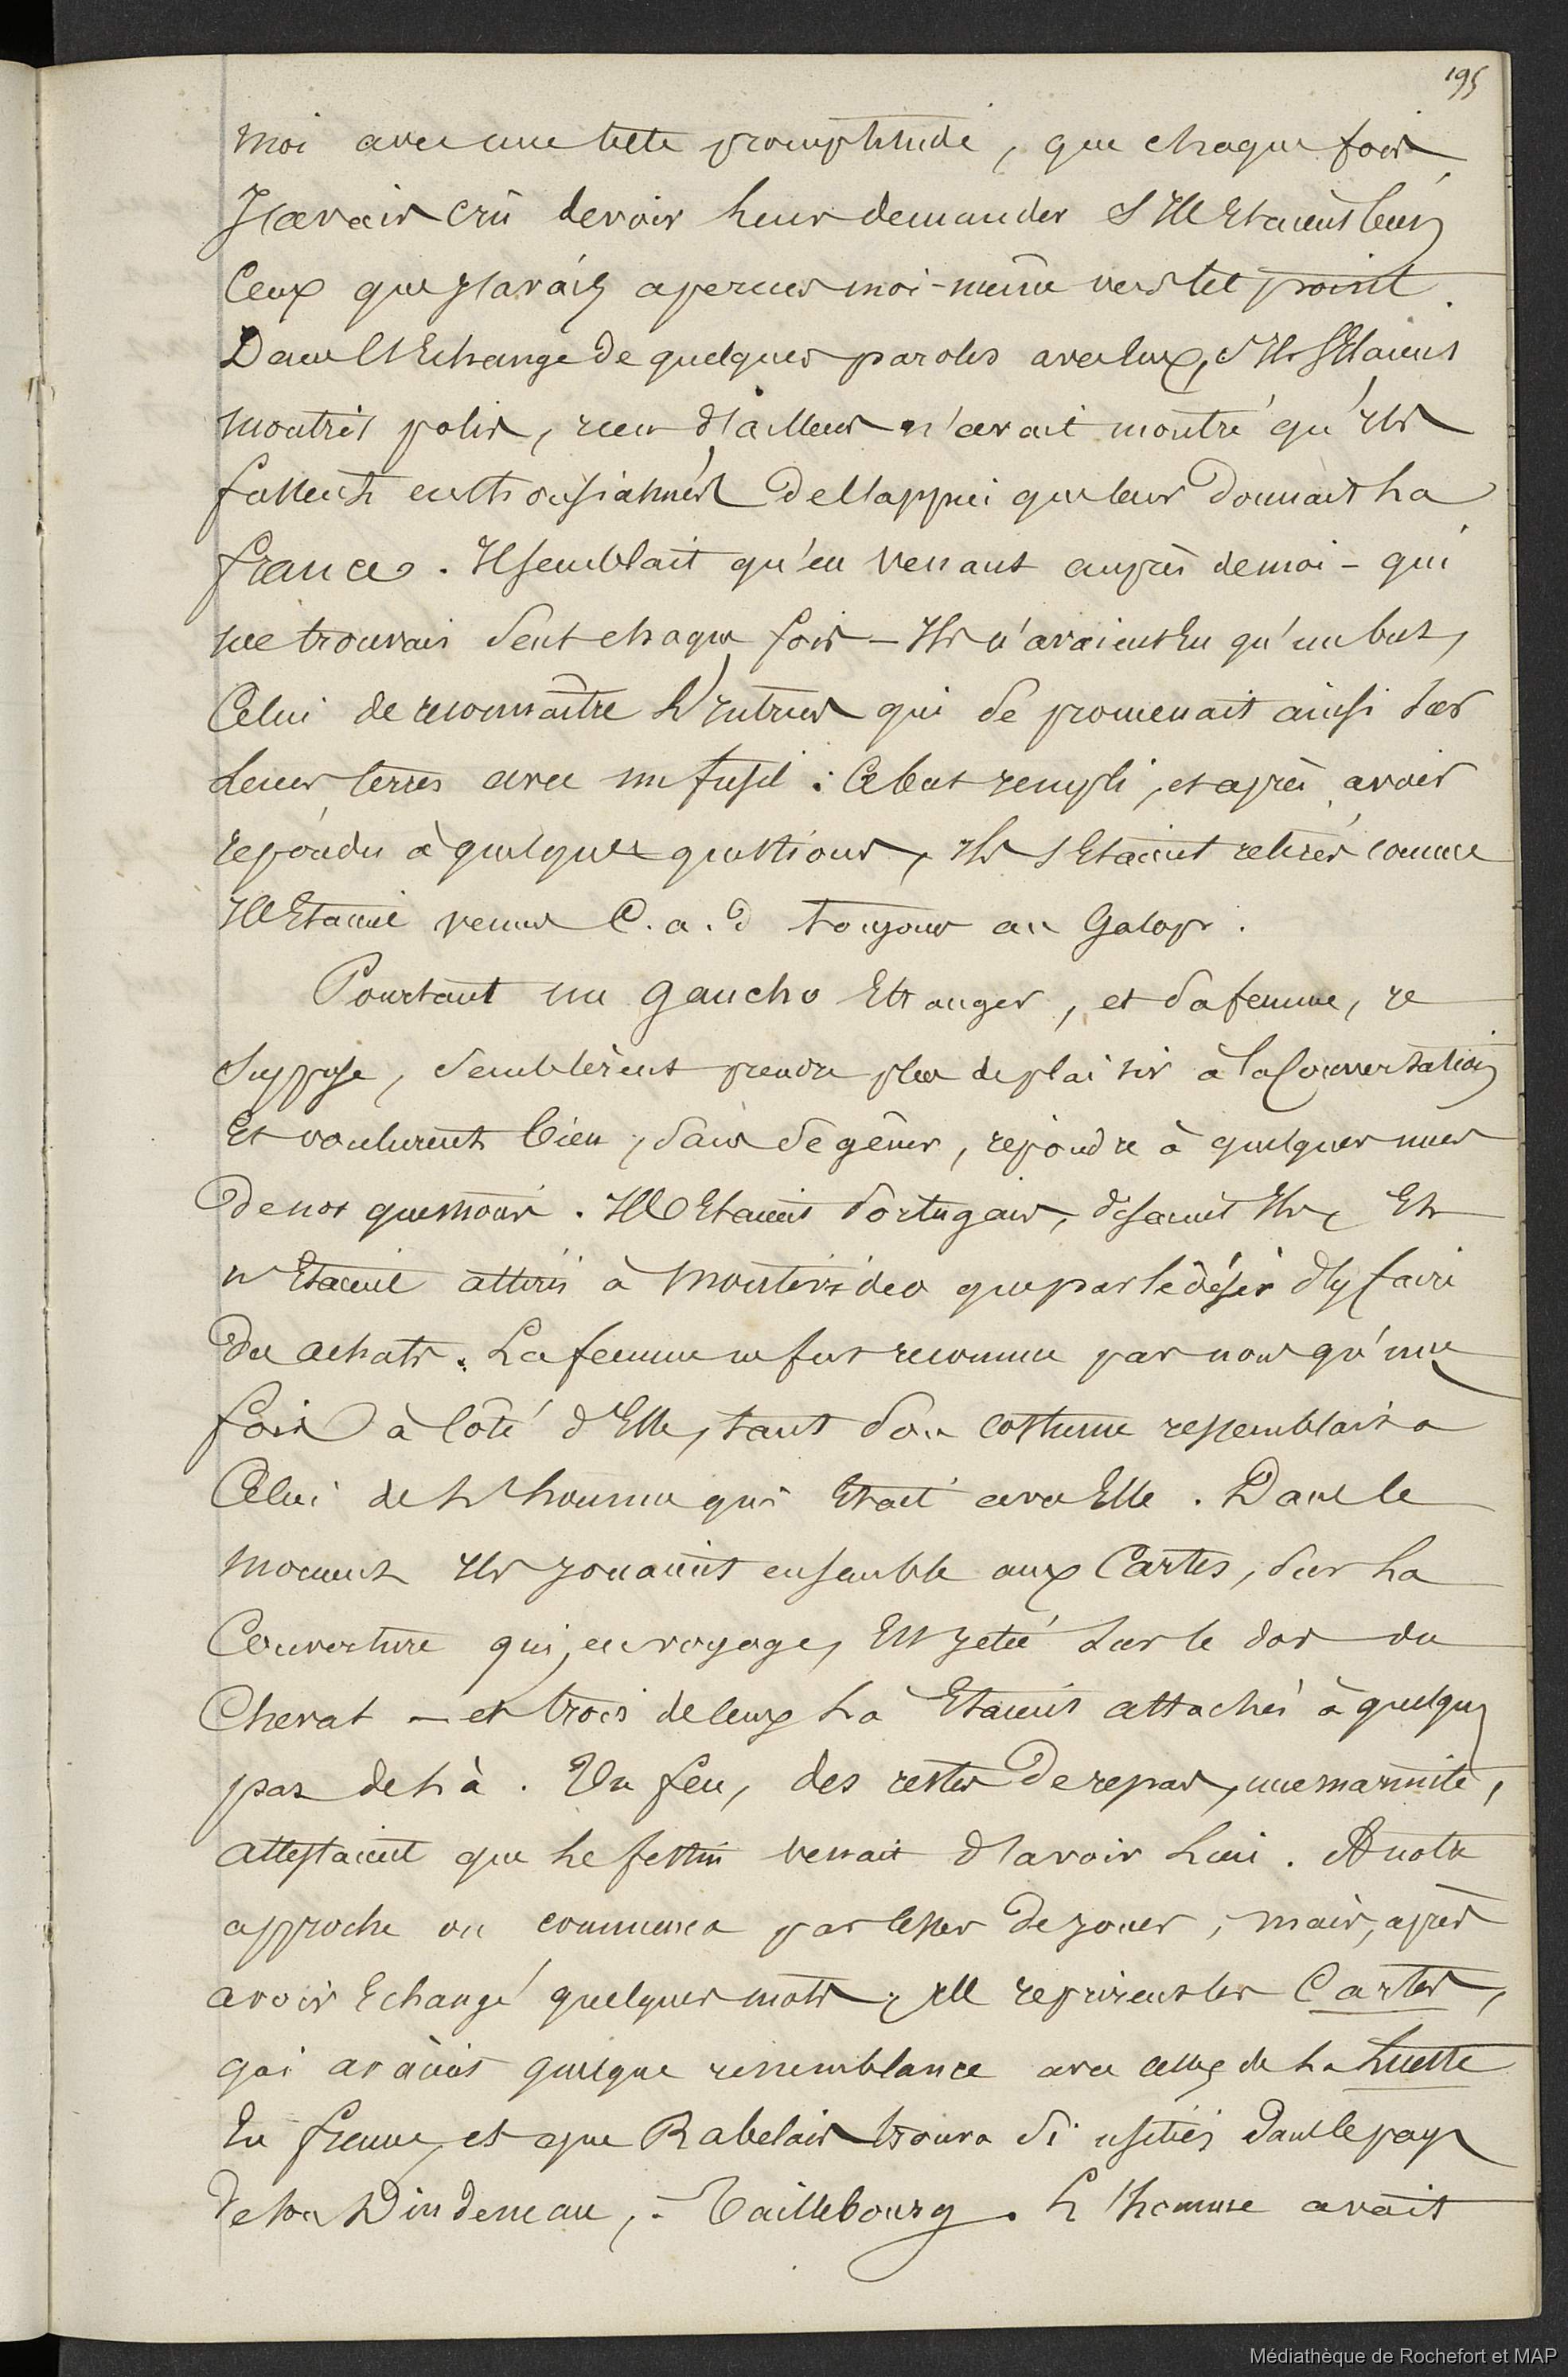 195
moi avec une telle promptitude, que chaque fois
J'avais crû devoir leur demander S'Ils Etaient bien
Ceux que j'avais apercus moi-même vers tel point.
Dans l'Echange de quelques paroles avec eux, S'Ils S'Etaient
montrés polis, rien d'ailleurs n'avait montré qu'Ils
fussent enthousiasmés de l'appui que leur donnait La
france. Il semblait qu'en venant auprès de moi - qui
me trouvais Seul chaque fois - Ils n'avaient Eu qu'un but,
Celui de reconnaître L'Intrus qui Se promenait ainsi Sur
Leurs terres avec un fusil : Ce but rempli, et après avoir
repondu à quelques questions, Ils S'Etaient retirés comme
Ils Etaient venus C.a.d toujours au Galop.
Pourtant un Gaucho Etranger, et Sa femme, je
Suppose, Semblèrent prendre plus de plaisir à la Conversation
Et voulurent bien, Sans Se gêner, repondre à quelques unes
de nos questions. Ils Etaient Portugais, disaient Ils, Et
n'Etaient attirés à Montevideo que par le désir d'y faire
des achats. La femme ne fut reconnue par nous qu'une
fois à Côté d'Elle, tant Son costume ressemblait a
Celui de L'homme qui Etait avec Elle. Dans le
moment Ils jouaient ensemble aux Cartes, Sur La
Couverture qui, en voyage, Est jetée Sur le dos du
Cheval — et trois de ceux La Etaient attachés à quelques
pas de Là. Un feu, des restes de repas, une marmite,
attestaient que Le festin venait d'avoir Lieu. A notre
approche on commenca par cesser de jouer, mais, après
avoir Echangé quelques mots, Ils reprirent les Cartes,
qui avaient quelque ressemblance avec celles de La Luette
En france, et que Rabelais trouva Si usitées dans le pays
de Dindeneau, - Taillebourg. L'homme avait
Médiathèque de Rochefort et MAP